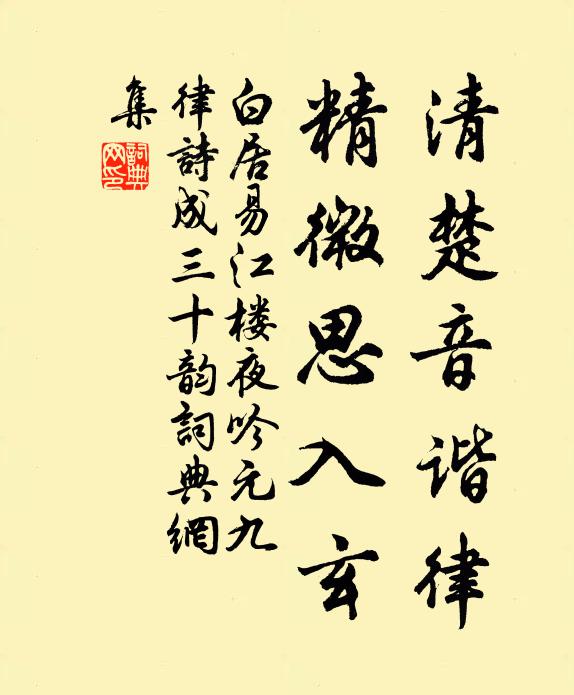 清楚音谐律
精微思入玄
白居易江楼夜吟元九
律詩成三十韵詞典網
集
詞典網印